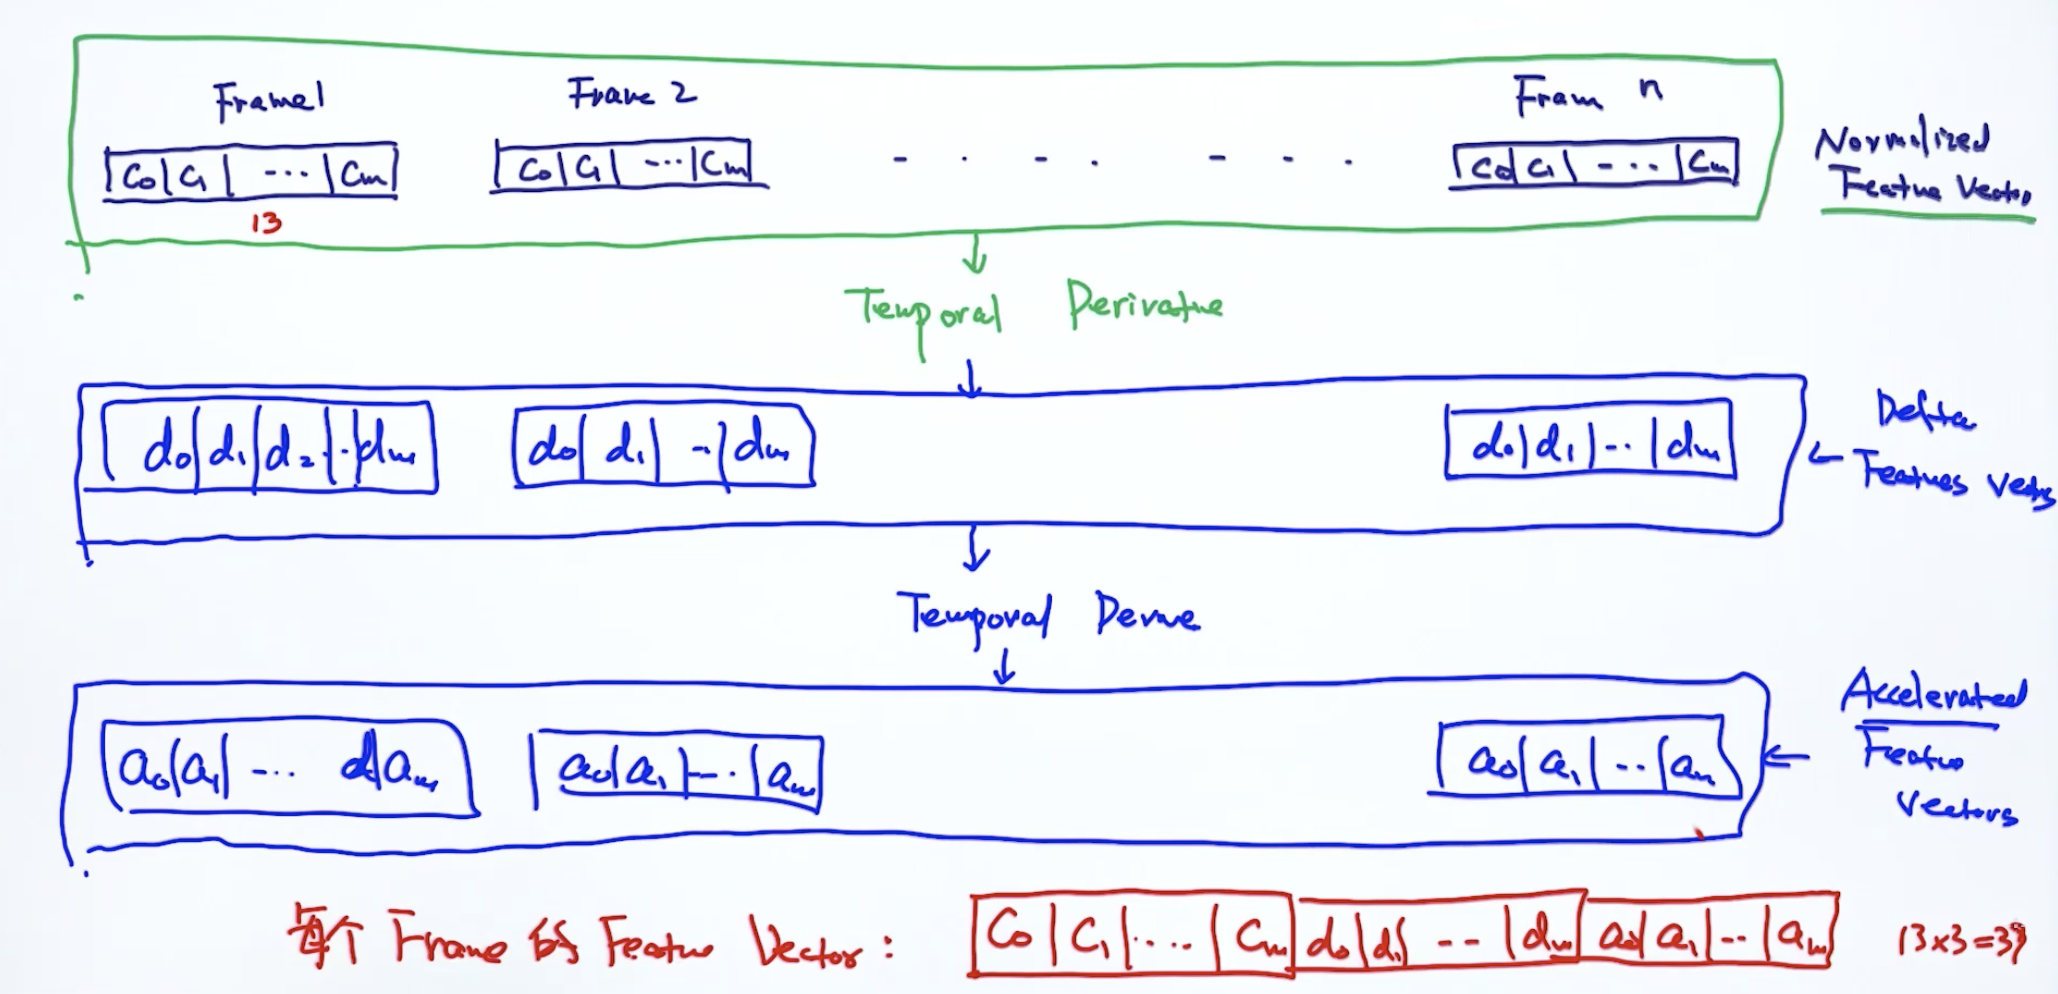 Frame1 Frame 2 Fram n
C0 | C1 | ... | Cm C0 | C1 | ... | Cm - . - . - - . C0 | C1 | - .. | Cm
Normalized
Feature Vector
13
Temporal Derivative
d0 | d1 | d2 | . | dm d0 | d1 | .. | dm d0 | d1 | .. | dm
Delta
Features Vectors
Temporal
a0 | a1 | ... d | am a0 | a1 | - .. | am a0 | a1 | .. | am
Accelerated
Featur
Vectors
每个 Frame 的 Featur Vector : C0 | C1 | .... | Cm | d0 | d1 | -- | dm | a0 | a1 | .. | am 13x3=39